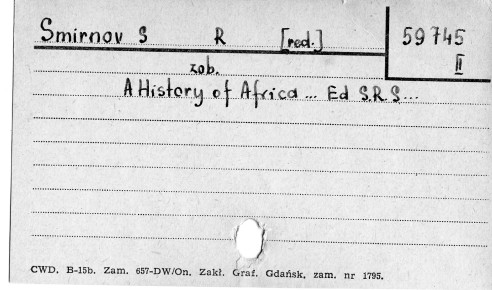 Smirnov S R [red.] 59745
II
zob.
A History of Africa ... Ed S.R.S...
CWD. B-15b. Zam. 657-DW/On. Zakł. Graf. Gdańsk, zam. nr 1795.